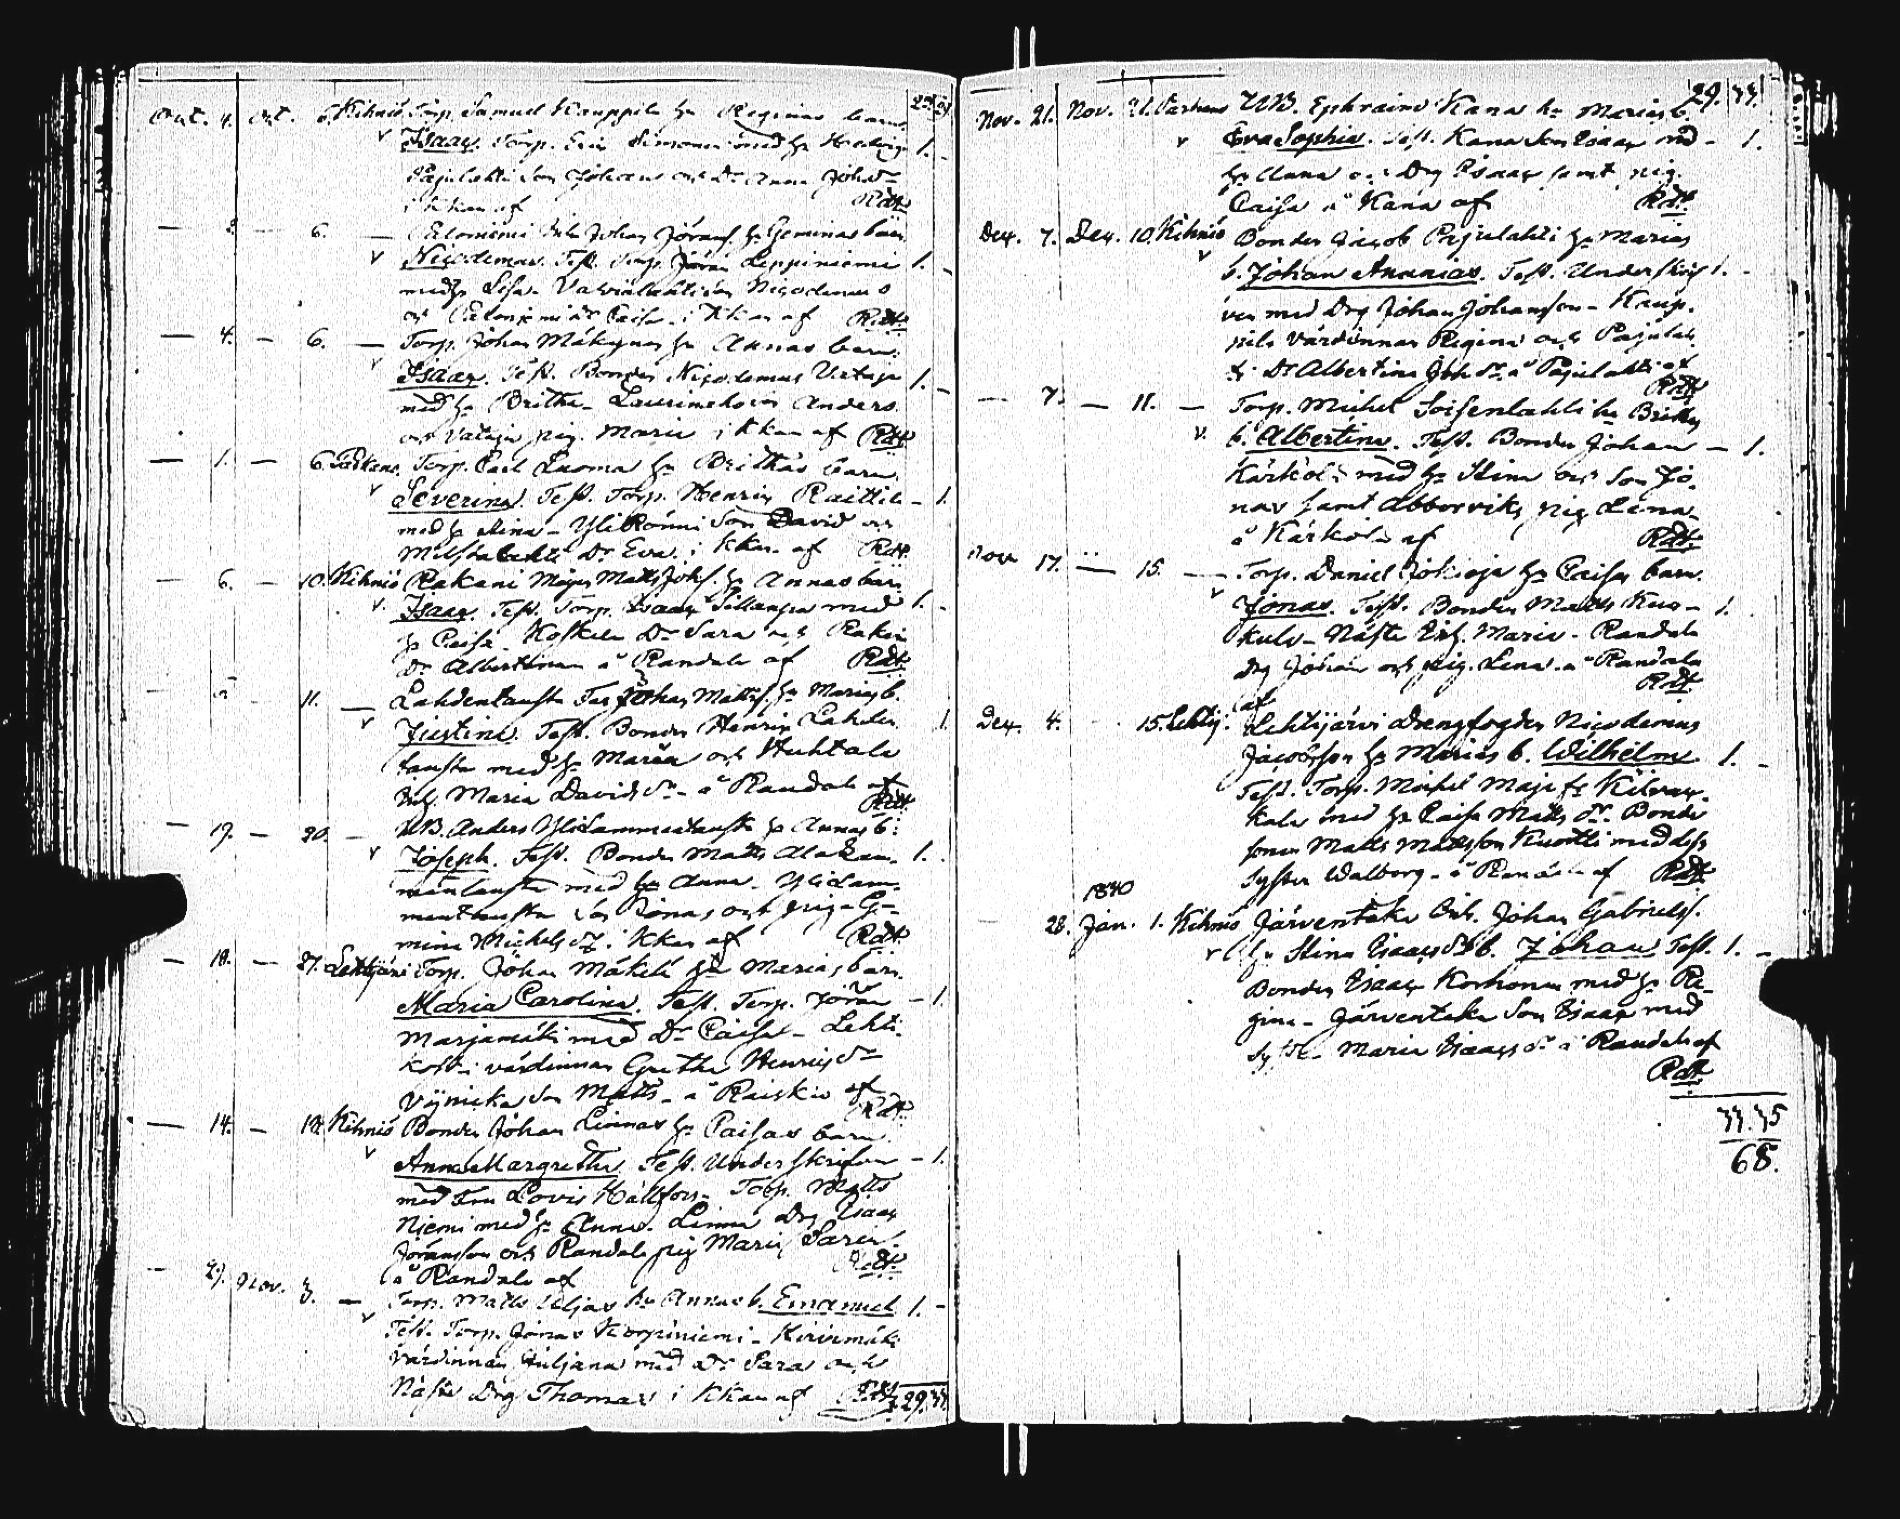 Oct. 4. Oct. 6. Kihniö Torp. Samuel Kauppila h: Reginas barn
Isaac. Torp. Eric Simonen med h: Hedvig 1.
Pajulahti Son Johans och Dr Anna Joh.dr
i Kkan af Rdt.
6. Johan Jörans. h: Geminas barn
Nicodemus. Test. Torp. Jöran Leppiniemi 1.
med h: Lisa. Nicodemus
Caisa i Kkan af Rdt.
4. 6. Torp. Johan Mäkynen h: Annas barn
Isaac. Test. Bonden Nicodemus Vataja 1.
med h: Britha. Anders
och Vataja pig. Maria i Kkan af Rdt.
1. 6. Parkano. Torp. Carl Luoma h: Brithas barn
Severina. Test. Torp. Henric Raittila 1.
med h: Stina. Ylikönni Son David och
Dr Eva i Kkan af Rdt.
6. 10. Kihniö Rakani Matts Johs. h: Annas barn
Isaac. Test. Torp. Isaac Sillanpä med 1.
h: Caisa. Koskela Dr Sara och
Dr Albertina å Randala af Rdt.
11. Lahdentausta Johan Matts. h: Marias b.
Justina. Test. Bonden Henric Lahden 1.
tausta med h: Maria och Huhtala
Enk. Maria Davids dr å Randala af
Rdt.
17. 20. NB. Anders Ylidammentausta h: Annas b:
Joseph. Test. Bonden Matts Aladam 1.
mentausta med h: Anna. Ylidam-
mentausta Son Jonas och pig. Ge-
mina Michels dr i Kkan af Rdt.
18. 21. Lehtijärvi Torp. Johan Mäkelä h: Marias barn.
Maria Carolina. Test. Torp. Jöran 1.
Marjamäki med Dr Caisa. Lehti-
koski värdinnan Gretha Henrics dr
Son Matts å Raiskio af
Rdt.
14. 18. Kihniö Bonden Johan Linnas h: Caisas barn
Anna Margretha. Test. Underskrifven 1.
med Fru Lovis Hällfors. Torp. Matts
Niemi med h: Anna. Linna Drg Isaac
Jöransson och Randala pig Maria
å Randala af Rdt.
27. Nov. 3. Torp. Matts Viljas h: Annas b. Emanuel 1.
Test. Torp. Jonas Korpiniemi. Kirvimäki
Värdinnan Juliana med Dr Sara och
Näsi Drg Thomas i Kkan af Rdt. 29.33.
29. 33.
Nov. 21. Nov. 21. Parkano NB. Ephraim Kana h: Marias b.
Eva Sophia. Test. Kana Son Isaac med 1.
h: Anna och Drg Isaac samt pig.
Caisa å Kana af Rdt.
Dec. 7. Dec. 10. Kihniö Bonden Jacob Pajulahti h: Marias
b. Johan Ananias. Test. Underskrif- 1.
ven med Drg Johan Johansson. Kaup-
pila värdinnan Regina och Pajulah-
ti Dr Albertina Joh dr å Pajulahti af
Rdt.
7. 11. Torp. Michel Soisenlahti h: Brithas
b. Albertina. Test. Bonden Johan 1.
Kärkölä med h: Stina och Son Jo-
nas samt Abborviks pig Lena
å Kärkölä af Rdt.
Nov 17. 15. Torp. Daniel Jokioja h: Caisas barn.
Jonas. Test. Bonden Matts Kuo- 1.
kula. Näsi Enk. Maria. Randala
Drg Johan och pig. Lena å Randala
af Rdt.
Dec. 4. 15. Lehtij: Lehtijärvi Drengfogden Nicodemus
Jacobsson h: Marias b. Wilhelm 1.
Test. Torp. Michel Maja fr. Kilvak-
kala med h: Caisa Matts dr. Bonde
sonen Matts Mattsson Kuntti med dess
Syster Walborg å Randala af Rdt.
1840
28. Jan. 1. Kihniö Järventaka Enk. Johan Gabriels.
h: Stina Isaacs dr b. Johan Test. 1.
Bonden Isaac Korhonen med h: Re-
gina. Järventaka Son Isaac med
Syster Maria Isaacs dr å Randala af
Rdt.
33. 35
68.